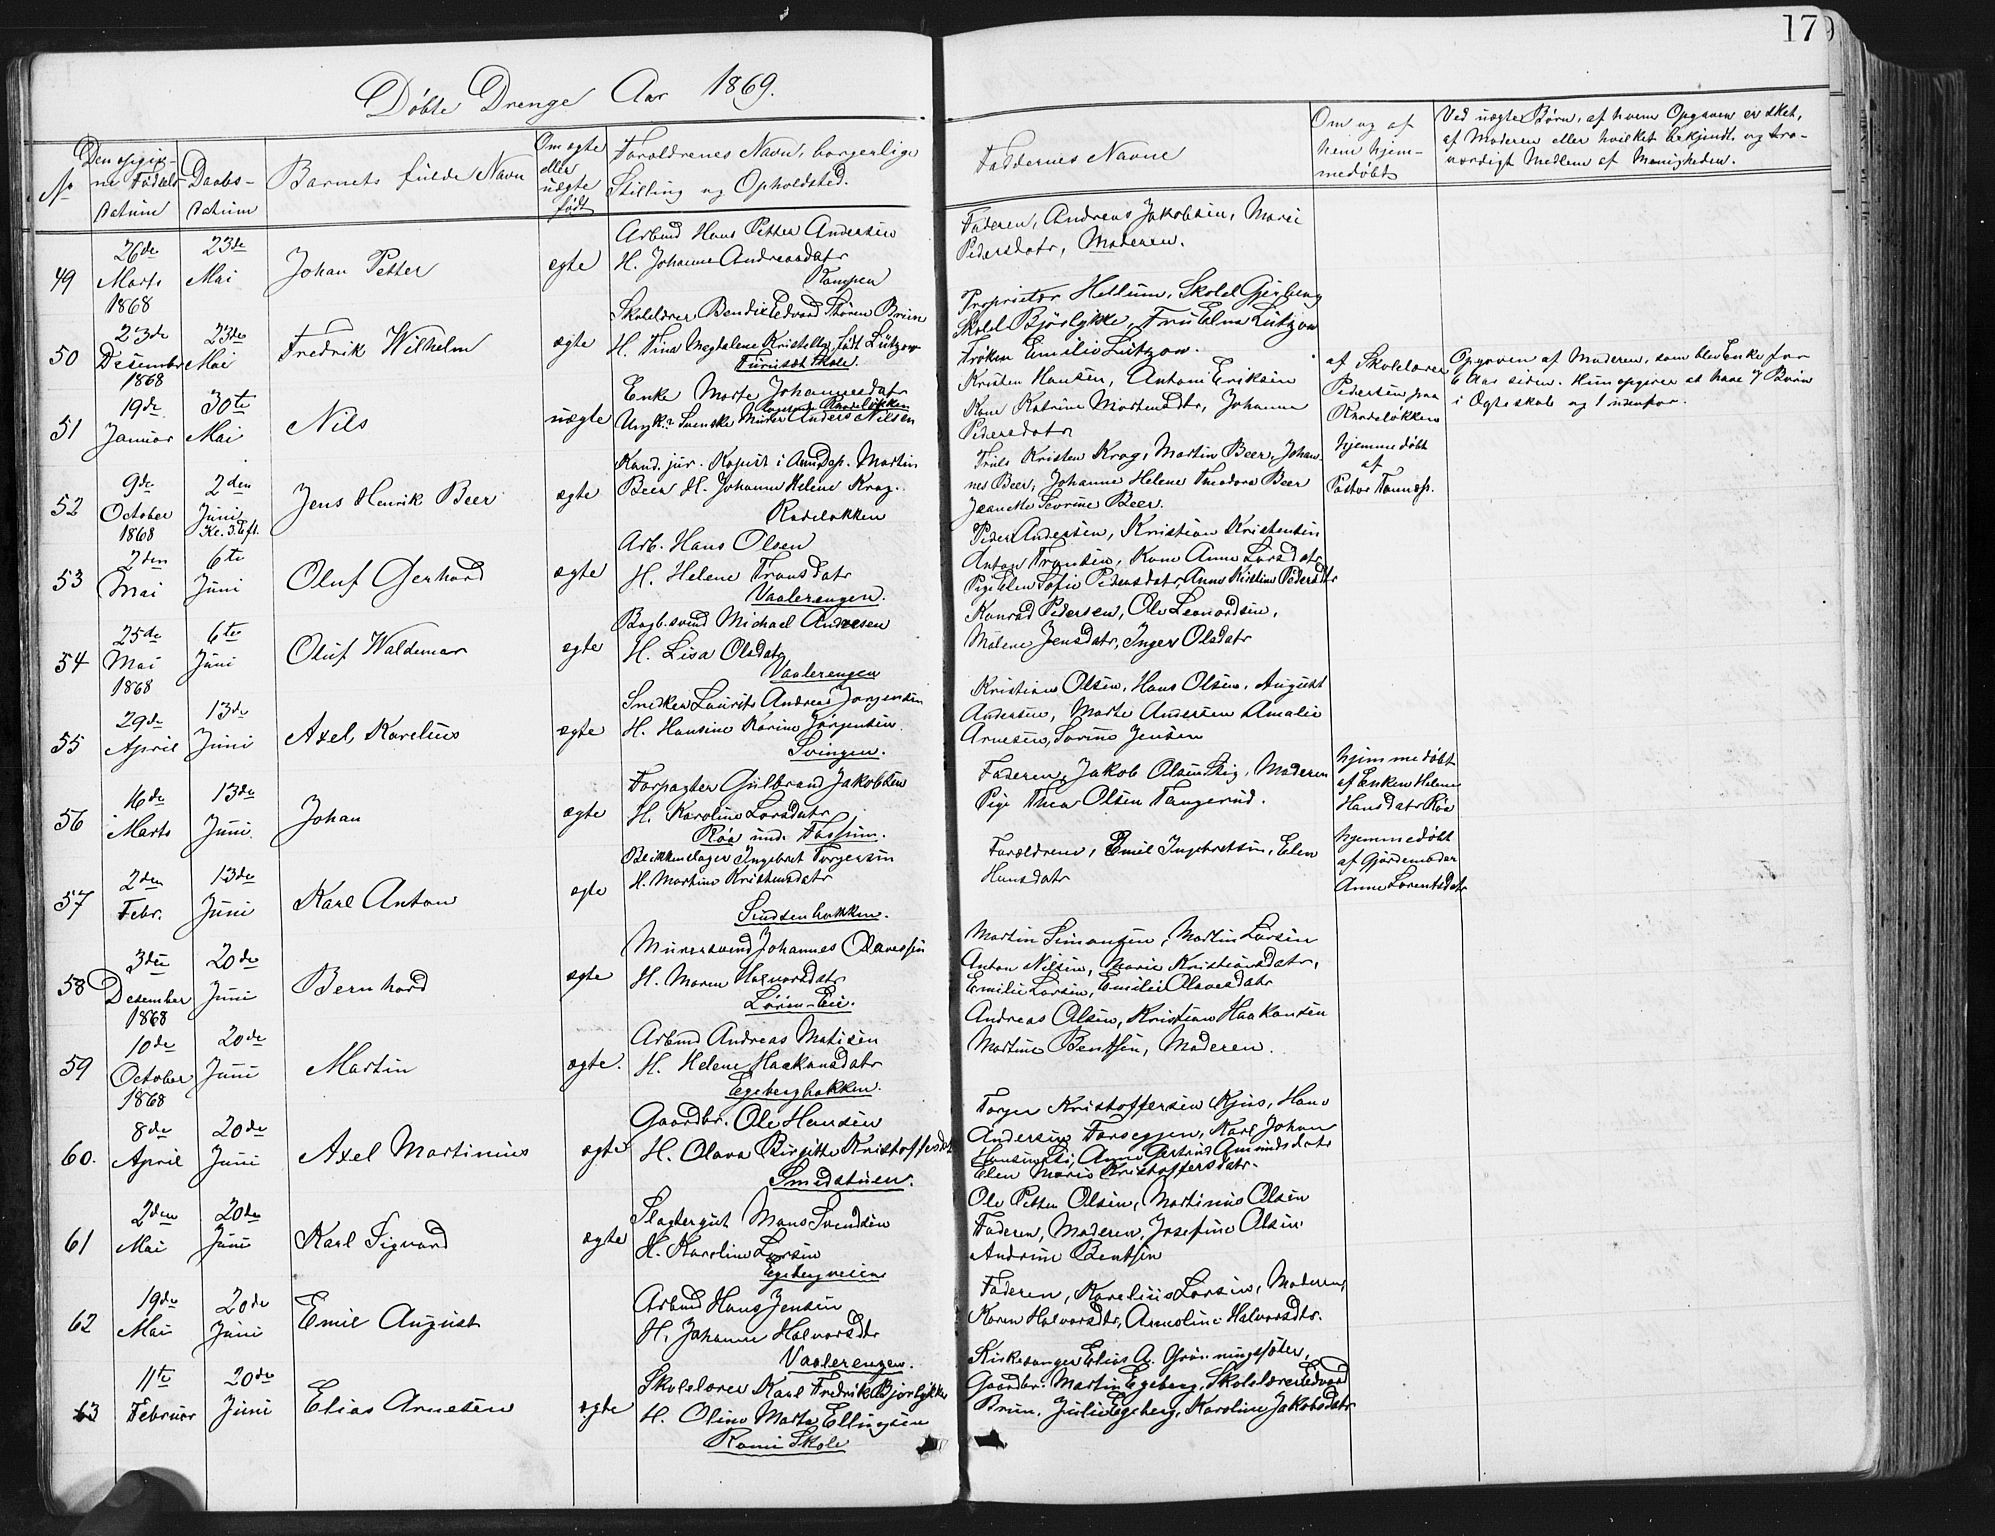 179
Døbte Drenge Aar 1869.
No
Den opgiv-
ne Fødsels
datum
Daabs-
datum
Barnets fulde Navn
Om ægte
eller
uægte
født
Forældrenes Navn, borgerlige
Stilling og Opholdsted.
Faddernes Navne
Om og af
hvem hjem-
medøbt
Ved uægte Børn, af hvem Opgaven er sket,
af Moderen eller hvilket bekjendt og tro-
værdigt Medlem af Menigheden.
49
26de
Marts
1868
23de
Mai
Johan Petter
ægte
Arbmd Hans Petter Andersen
H. Johanne Andreasdatr
Kampen
Faderen, Andreas Jakobsen, Marie
Pedersdatr, Moderen.
50
23de
Desember
1868
23de
Mai
Fredrik Wilhelm
ægte
Skolelærer Bendix Edvard Thøren Bruun
H. Tina Magdalene Kristelly født Lützow
Furuset Skole.
Proprietær Hellum, Skolel Gjerberg
Skolel Bjørlykke, Fru Elna Lützow
Frøken Emilie Lützow.
51
19de
Januar
30te
Mai
Nils
uægte
Enke Marte Johannesdatr
Rodeløkken
Ungk. Svenske Murer Anders Nilsen
Kristen Hansen, Antoni Eriksen
Kone Katrine Mortensdtr, Johanne
Pedersdatr
af Skolelærer
Pedersen paa
Rhodeløkken
Opgaven af Moderen, som blev Enke for
6 Aar siden. Hun opgiver at have 7 Børn
i Ægteskab og 1 udenfor.
52
9de
October
1868
2den
Juni
Kl. 3. Eft.
Jens Henrik Beer
ægte
Kand. jur. Kopist i Dep. Martin
Beer H. Johanne Helene Krag.
Rodeløkken
Truls Kristen Krag, Martin Beer, Johan-
nes Beer, Johanne Helene Theodora Beer
Jeanette Severine Beer.
hjemmedøbt
af
Pastor
53
2den
Mai
6te
Juni
Oluf Gerhard
ægte
Arb. Hans Olsen
H. Helene Fransdatr
Vaalerengen.
Peder Andersen, Kristian Kristensen
Anton Fransen, Kone Anne Larsdatr
Pige Elen Sofie Pedersdatr, Anne Kirstine Pedersdtr
54
25de
Mai
1868
6te
Juni
Oluf Waldemar
ægte
Bogb.svend Michael Andresen
H. Lisa Olsdatr
Vaalerengen
Konrad Pedersen, Ole Leonardsen,
Malene Jensdatr, Inger Olsdatr
55
29de
April
13de
Juni
Axel Karelius
ægte
Snedker Laurits Andreas Jørgensen
H. Hansine Karine Jørgensen
Svingen.
Kristian Olsen, Hans Olsen, August
Andersen, Marte Andersen Amalie
Arnesen, Sørine Jensen
56
16de
Marts
13de
Juni
Johan
ægte
Forpagter Gulbrand Jakobsen
H. Karoline Larsdatr
Røa under Fossum.
Faderen, Jakob Olsen , Moderen
Pige Thea Olsen Tangerud.
hjemmedøbt
af Enken Helene
Hansdatr Røa
57
2den
Febr.
13de
Juni
Karl Anton
ægte
Blikkenslager Ingebret Torgersen
H. Martine Kristensdatr
Sindsenbakken.
Forældrene, Emil Ingebretsen, Elen
Hansdatr
hjemmedøbt
af Gjordemoder
Anne Lorentsdatr
58
3die
Desember
1868
20de
Juni
Bernhard
ægte
Murersvend Johannes Olavessen
H. Maren Halvorsdatr
Løren-Eie.
Martin Simonsen, Martin Larsen
Anton Nilsen, Marie Kristiansdatr,
Emilie Larsen, Emilie Olavesdatr
59
10de
October
1868
20de
Juni
Martin
ægte.
Arbmd Andreas Matisen
H. Helene Haakansdatr
Egebergbakken.
Andreas Olsen, Kristian Haakansen
Martine Bentsen, Moderen.
60.
8de
April
20de
Juni
Axel Martinius
ægte
Gaardbr. Ole Hansen
H. Olava Birgitte Kristoffersdatr
Smedstuen.
Torger Kristoffersen Kjus, Hans
Andersen Torseggen, Karl Johan
Hansen , Anne Gertrud Amundsdatr
Elen Marie Kristoffersdatr.
61
2den
Mai
20de
Juni
Karl Sigvard
ægte
Slagtergut Mons Svendsen
H. Karoline Larsen
Egebergveien
Ole Petter Olsen, Martinius Olsen
Faderen, Moderen, Josefine Olsen
Andrine Bentsen
62
19de
Mai
20de
Juni
Emil August
Arbmd Hans Jensen
H. Johanne Halvorsdtr
Vaalerengen.
Faderen, Karelius Larsen, Moderen,
Karen Halvorsdtr, Halvorsdtr.
63
11te
Februar
20de
Juni
Elias Arnesen
ægte
Skolelærer Karl Fredrik Bjørlykke
H. Oline Marta Ellingsen
Skole
Kirkesanger Elias A. Grønningssæter,
Gaardbr. Martin Egeberg, Skolelærer Edvard
Bruun, Julie Egeberg, Karoline Jakobsdatr